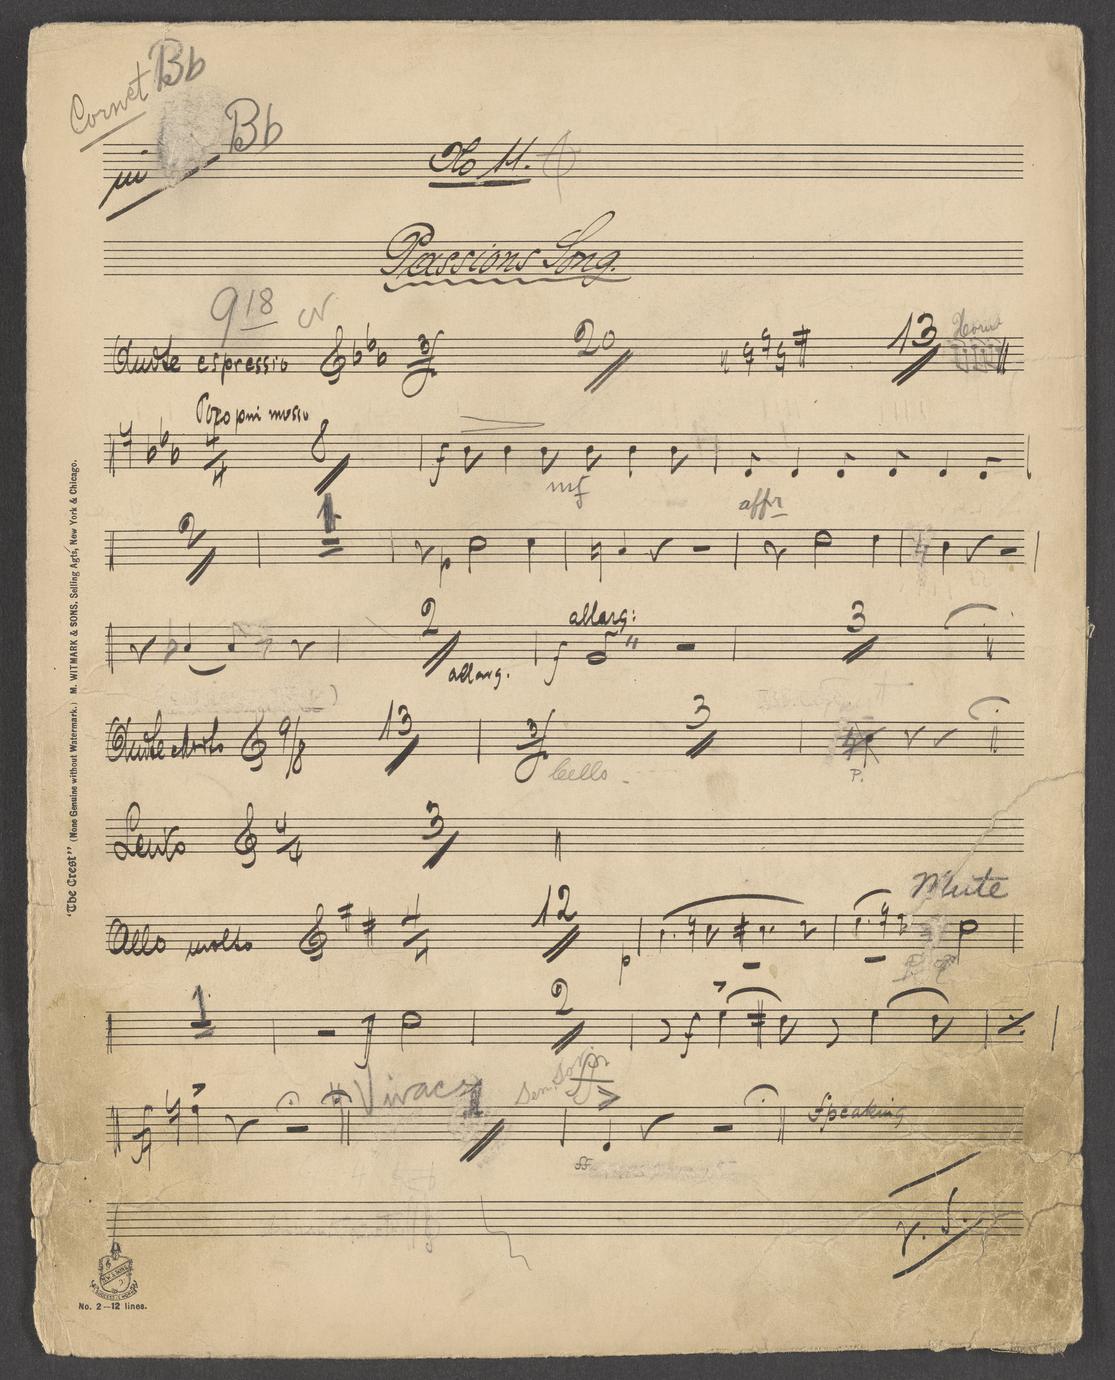 Cornet Bb
Bb
in
No 11.
Passions Song.
918
Andte espressio 3/4 20 13 Horns
Poco piu mosso
4/4 8 f
mf
affr
2 1 p
allarg:
2 f 3
allarg.
Andte 9/8 13 3/4 3
Cello
P.
Lento 4/4 3
Mute
Allo molto 4/4 12 p
1 2 f
Vivace Sen. Sord
ff 1 Speaking
ff
V. S.
"The Crest" (None Genuine without Watermark.) M. WITMARK & SONS. Selling Agts, New York & Chicago.
No. 2—12 lines.